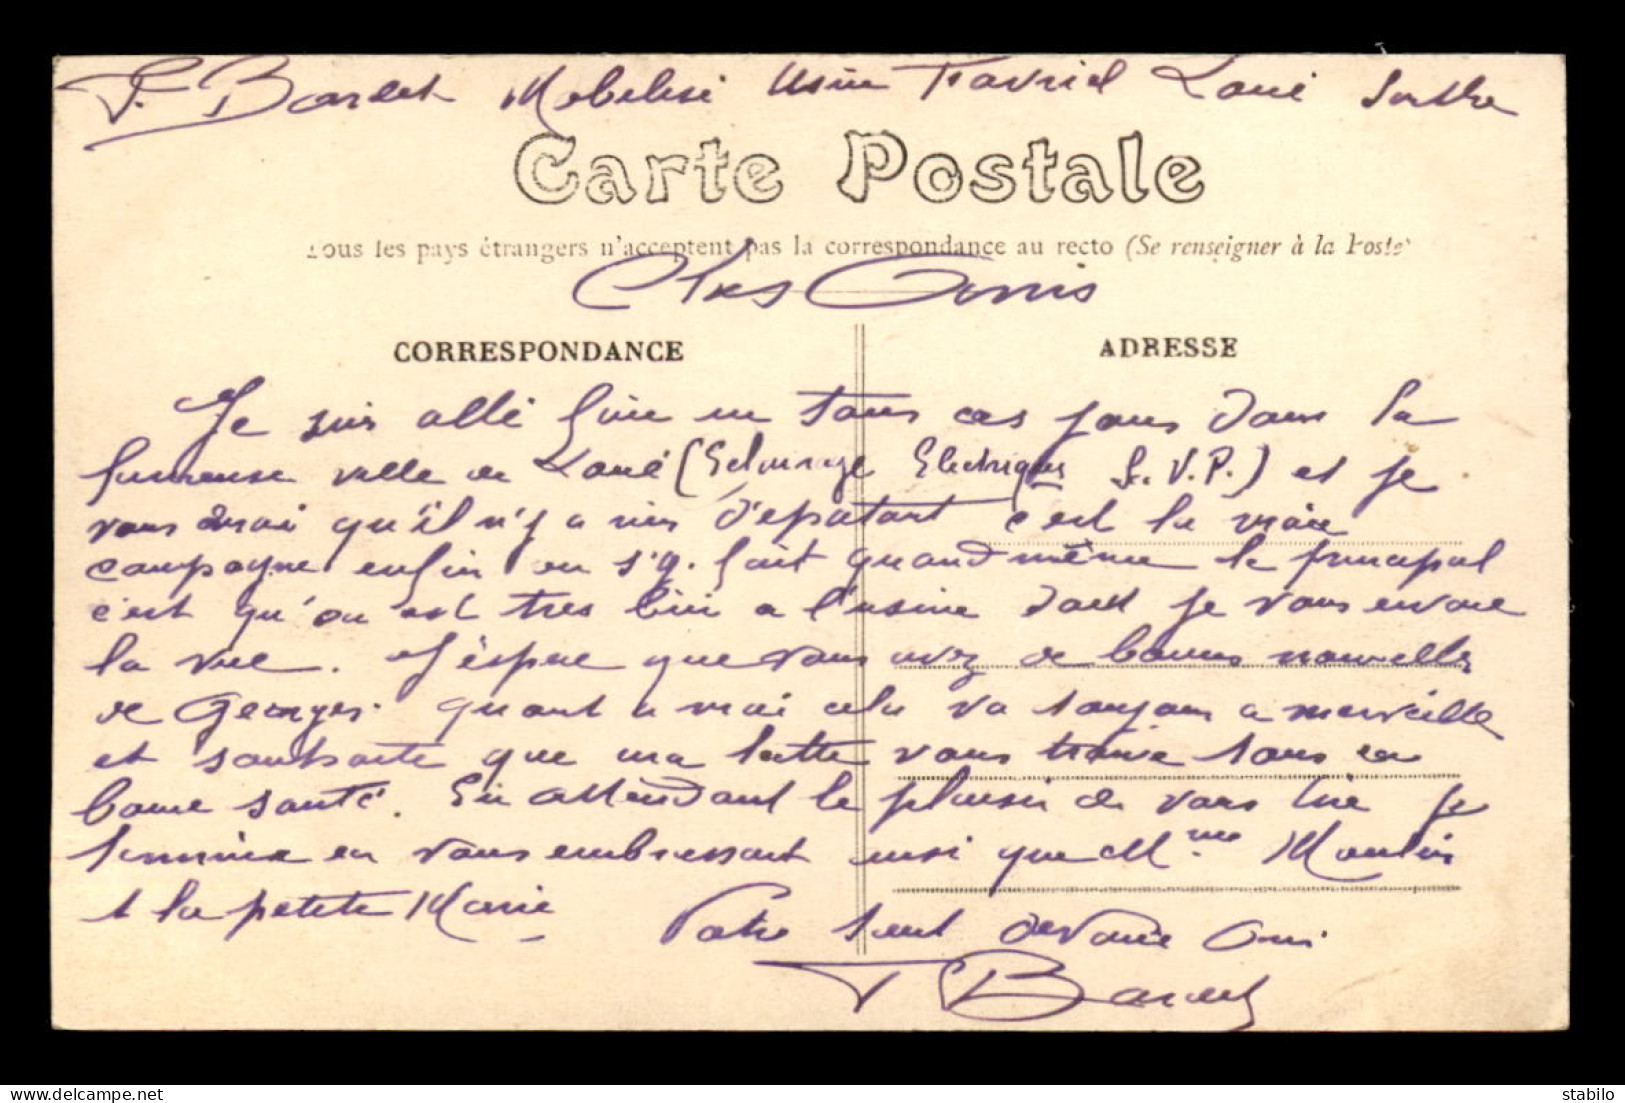 Mobilisé Usine Loué Sarthe
Carte Postale
Tous les pays étrangers n'acceptent pas la correspondance au recto (Se renseigner à la Poste)
Chers Amis
CORRESPONDANCE
ADRESSE
Je suis allé finir tous ces jours dans la
fumeuse ville de Loué (Eclairage Electrique S.V.P.) et je
vous dirai qu'il n'y a rien d'epatant c'est la vraie
campagne enfin on s'y fait quand même le principal
c'est qu'on est tres bien a l'usine dont je vous envoie
la vue. J'éspere que vous avez de bonnes nouvelles
de Georges. Quant a moi cela va toujours a merveille
et souhaite que ma lettre vous trouve tous en
bonne santé. En attendant le plaisir de vous lire je
termine en vous embrassant ainsi que Mme Moulin
et la petite Marie
Votre tout devoué Ami
delcampe.net
stabilo